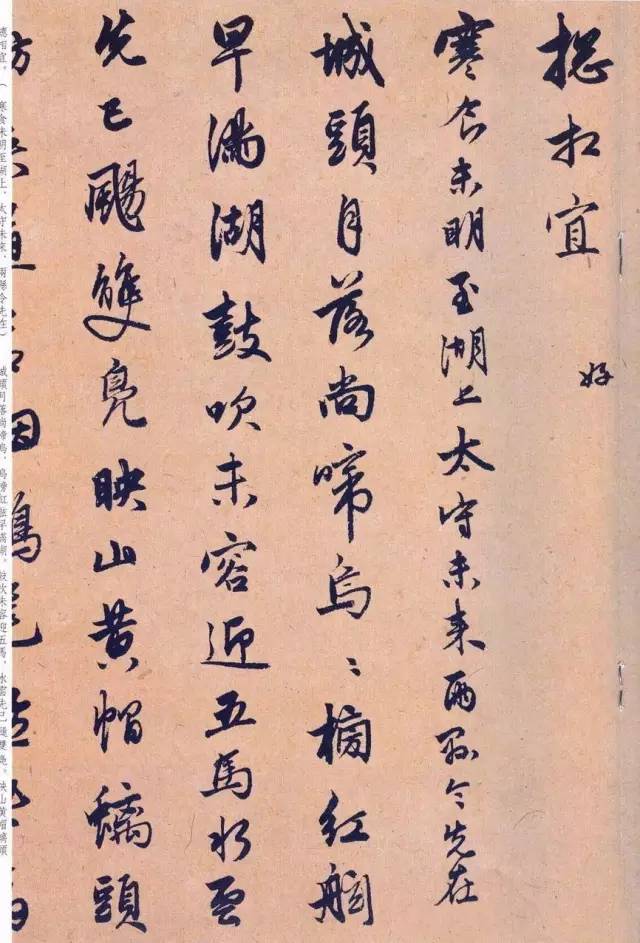 揔相宜
好
寒食未明至湖上太守未来兩縣令先在
城頭月落尚啼烏〻榜紅舷
早滿湖鼓吹未容迎五馬水雲
先已颺雙鳧映山黄帽螭頭
相宜。(寒食未明至湖上,太守未来,兩縣令先在) 城頭月落尚啼烏,烏榜紅舷早滿湖。鼓吹未容迎五馬,水雲先已颺雙鳧。映山黄帽螭頭